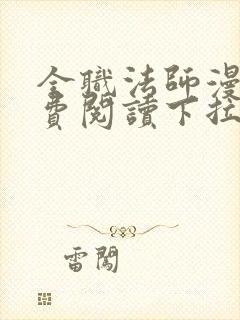 全職法師漫
費閱讀下拉
雷闖